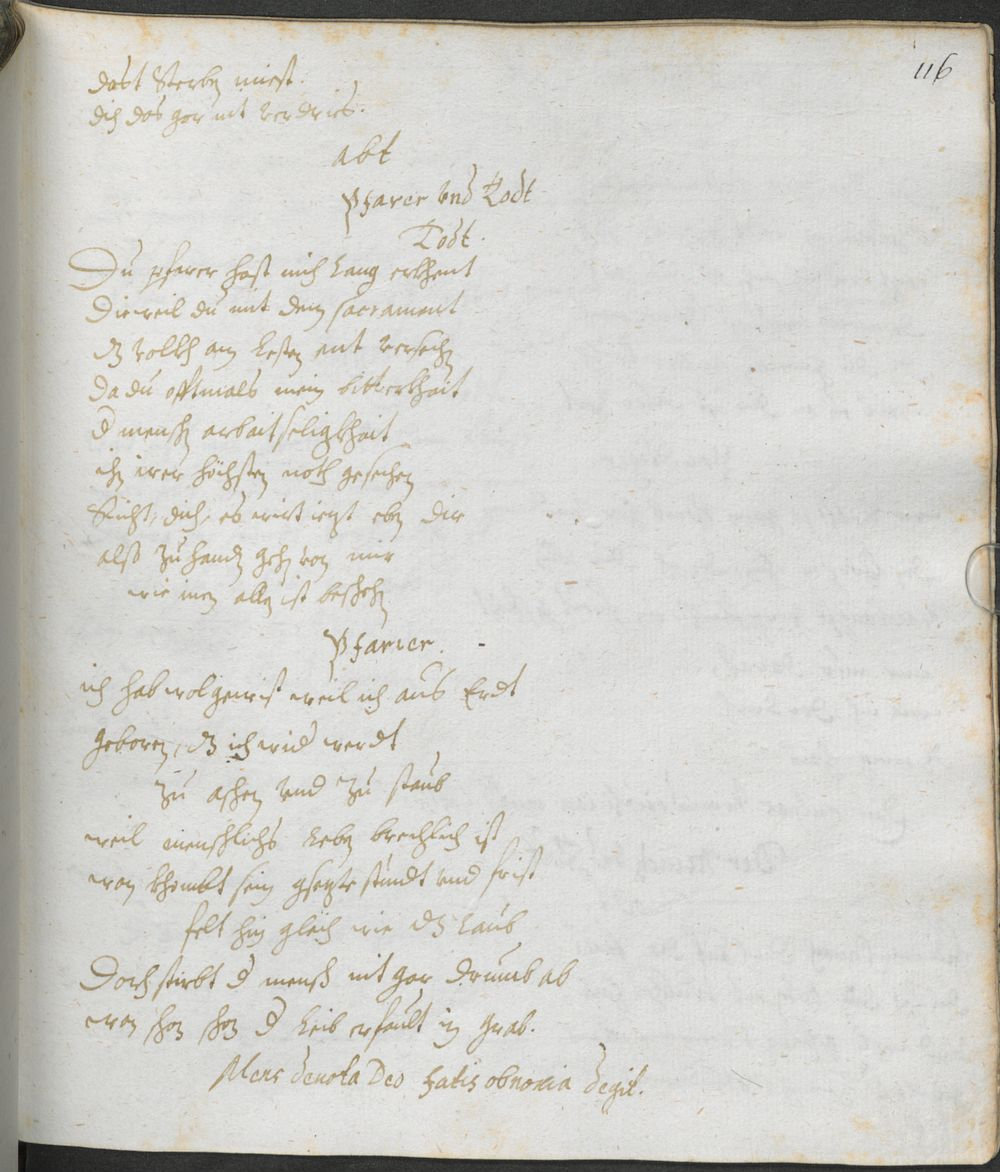 116
dast Sterbn miest.
dich das gar nit verdries.
abt
Pfarer und Todt
Todt.
Du pfarer hast mich Lang erkhent
Dieweil du mit dem sacrament
dz vollkh am Lesten ent versechn
Da du offtmals mein bitterkhait
d menschn arbaitseligkhait
ihn irer höchsten noth gesechen
Richt dich, es wirt iezt eben dir
alss zu handt gehn von mir
wie inen allen ist beschehn
Pfarrer.
ich hab wol gewist weil ich aus Erdt
geboren, dz ich wid werdt
zu aschen und zu staub
weil menschlichs Leben brechlich ist
wan khombt sein gsezte stundt und frist
felt hin gleich wie dz Laub
Doch stirbt d mensch nit gar drumb ab
wan schon d Leib erfault in Grab.
Mens devota Deo fatis obnoxia degit.